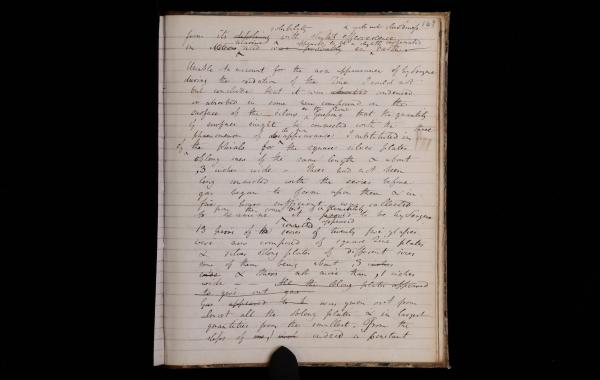 solubility
from its with slight effervescence
in nitrous acid
Unable to account for the non appearance of hydrogene
during the oxidation of the zinc I could not
but conclude that it was condensed
or absorbed in some new compound on the
surface of the silver or the zinc. Supposing that the quantity
of surface might be connected with the
phenomenon of disappearance I substituted in three
of the phials for the square silver plates
oblong ones of the same length & about
,3 inches wide – These had not been
long connected with the series before
gas began to form upon them & in
five hours sufficient was collected
to examine it it to be hydrogene
13 pieces of the series of twenty five glasses
were now composed of square zinc plates
& silver oblong plates of different sizes
some of them being about ,3 inches
wide & others not more than ,1 inches
wide – – All the oblong plates appeared
to give out gas
Gas appeared to be was given out from
almost all the oblong plates & in largest
quantities from the smallest. From the
slips of indeed a constant